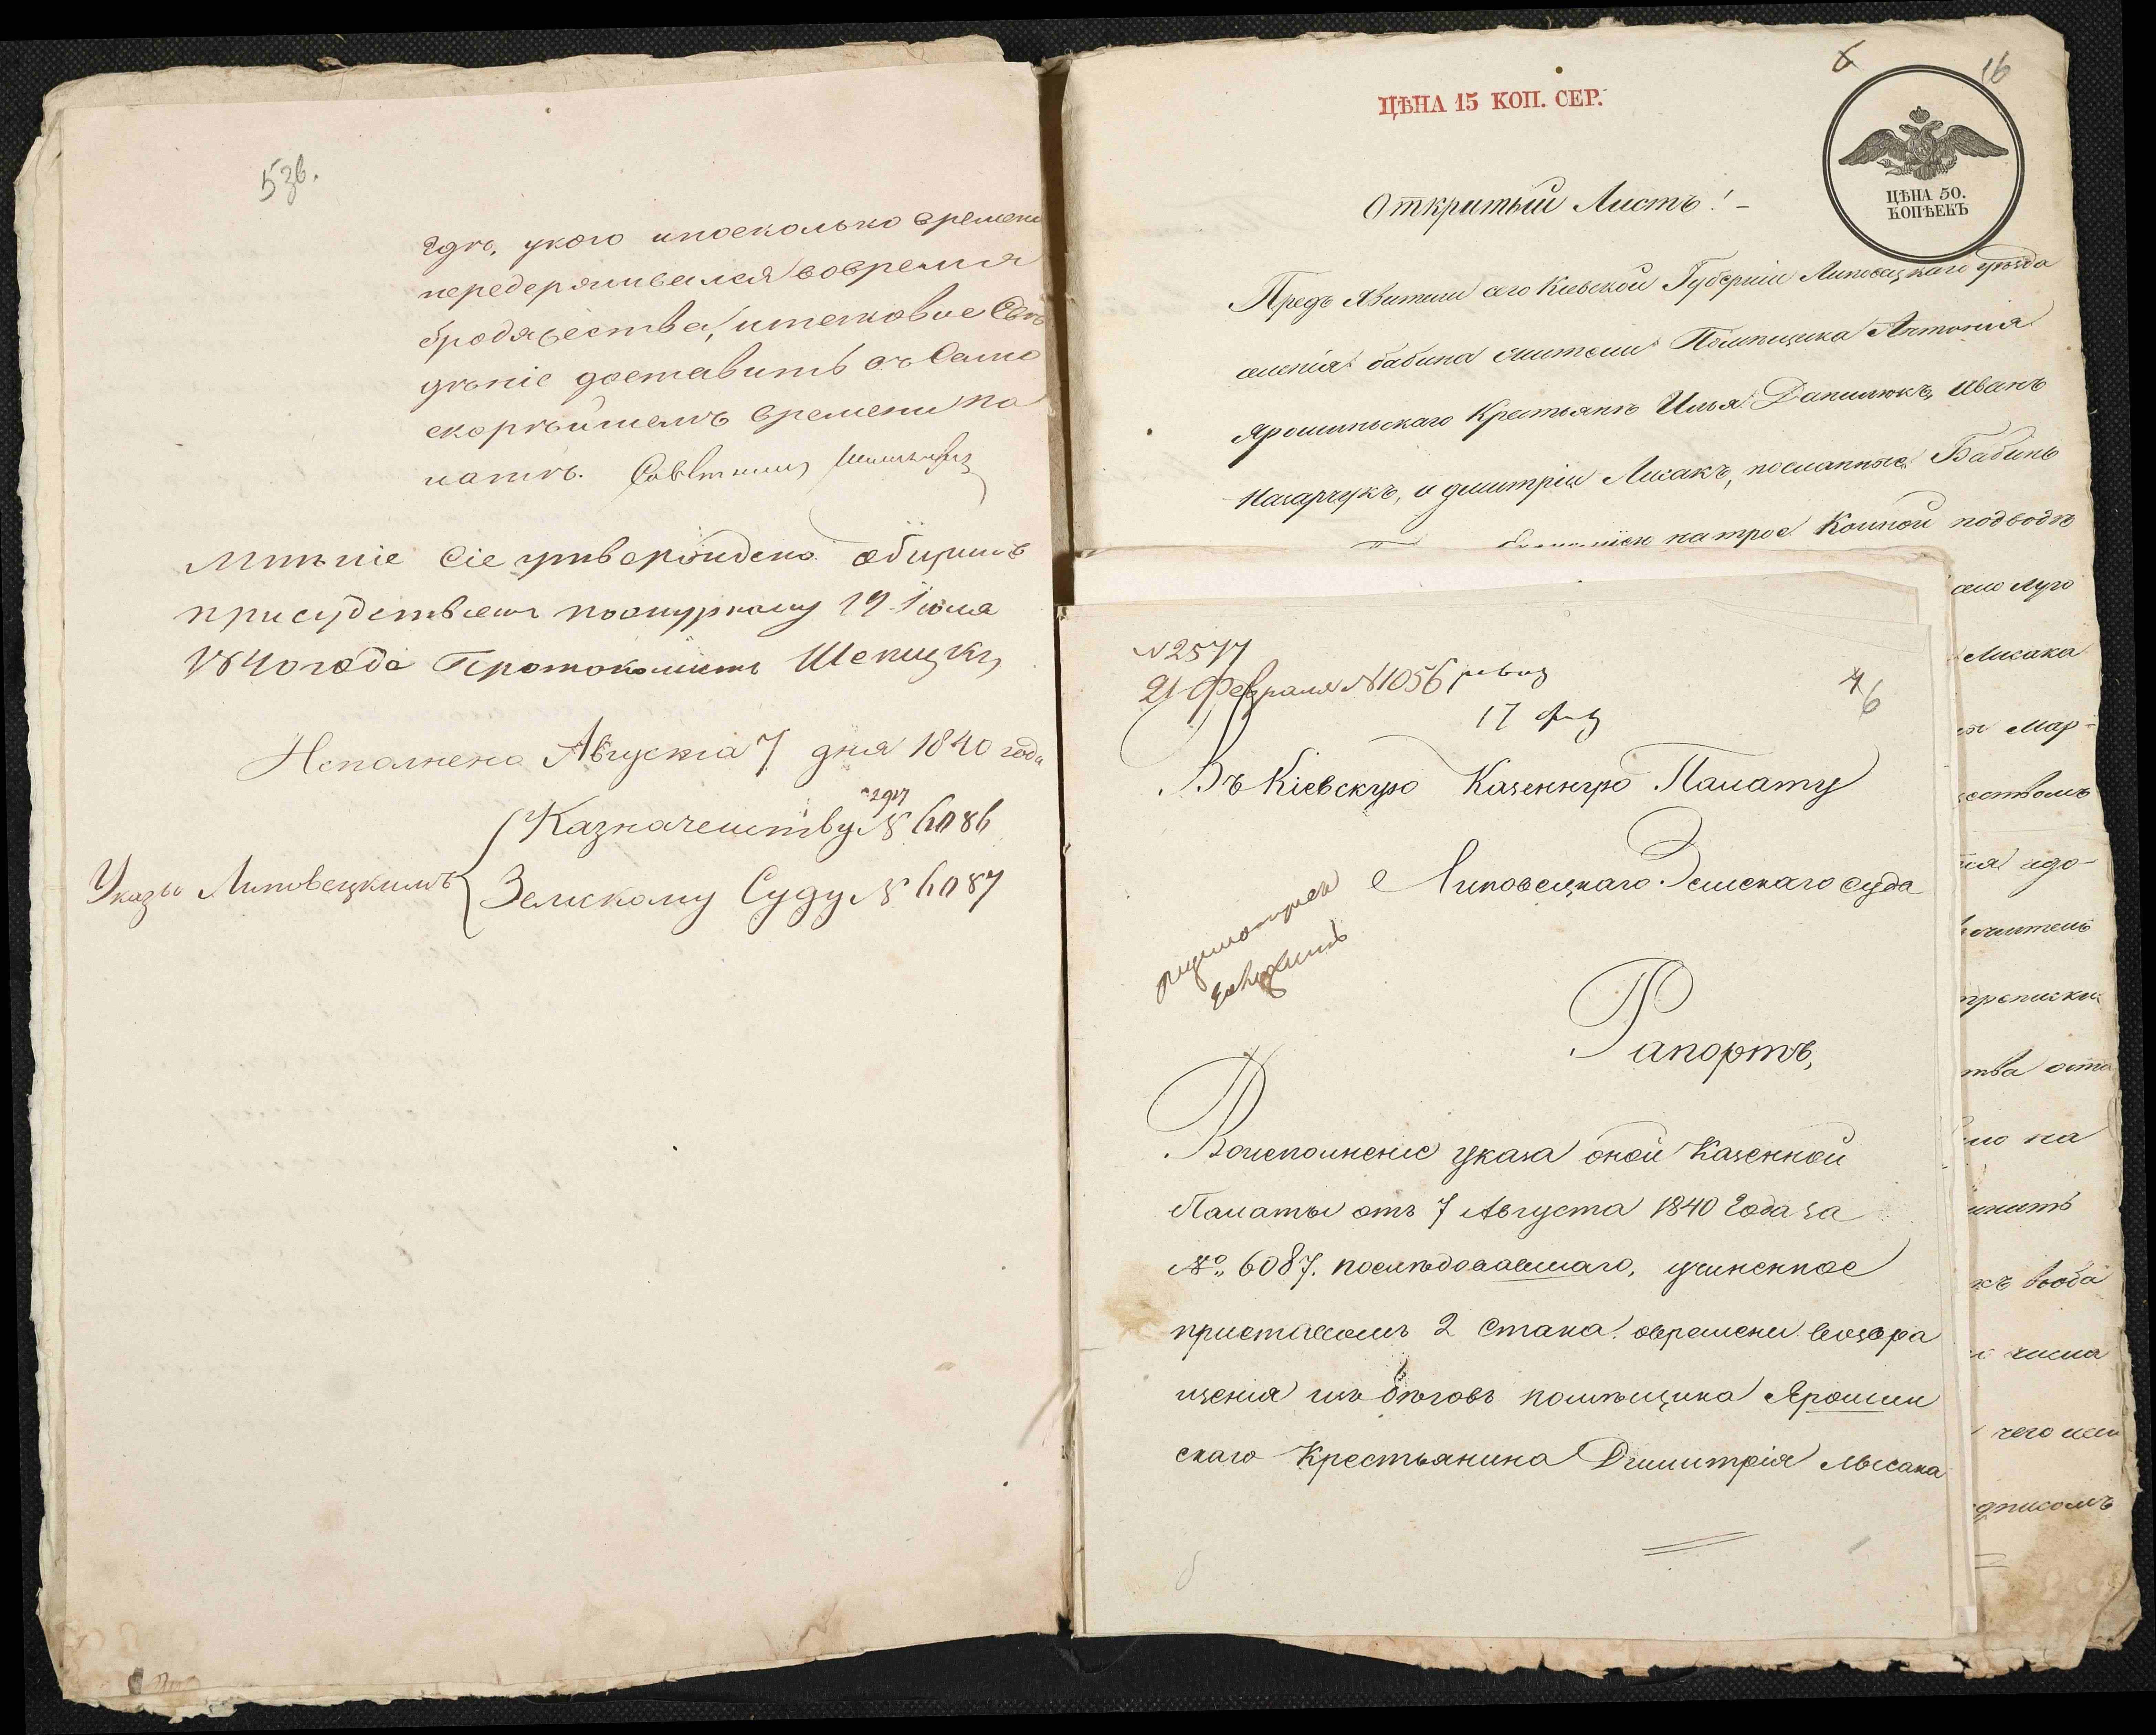 5 зв.
гдѣ, укого ипосколько времени
передерживался вовремя
бродяжества, итаковое Свѣ
дѣніе доставить въ Само
скорѣйшемъ времени па
латѣ. Совѣтникъ
Мнѣніе Сіе утверждено общимъ
присудствіем поожурналу 19 Іюля
1840 года Протоколистъ Шепицкій
Исполнено Августа 7 дня 1840 года
Указы Липовецкимъ
2917
Казначейству № 6086
Земскому Суду № 6087
16
ЦѢНА 15 КОП. СЕР.
ЦѢНА 50.
КОПѢЕКЪ
Открытый Листъ!
Предъявители сего Кіевской Губерніи Липовецкаго уѣзда
селенія Бабина жители Помѣщика Антонія
Ярошинскаго Крестьянѣ Илья Данилюкъ, Иванъ
и Дмитрій Лисакъ, посланные Бабинъ
на трое Конной подводѣ
Лисака
Мар-
ства оста
на
числа
чего
№ 2577
21 Февраля № 1056
17
6
Въ Кіевскую Казенную Палату
Липовецкаго Земскаго суда
Рапортъ,
Воисполненіе указа оной Казенной
Палаты отъ 7 Августа 1840 года за
№ 6087. послѣдовавшаго, учиненное
приставомъ 2 Стана овремени возвра
щенія изъ бѣговъ помѣщика Ярошин
скаго Крестьянина Димитрія Лисака